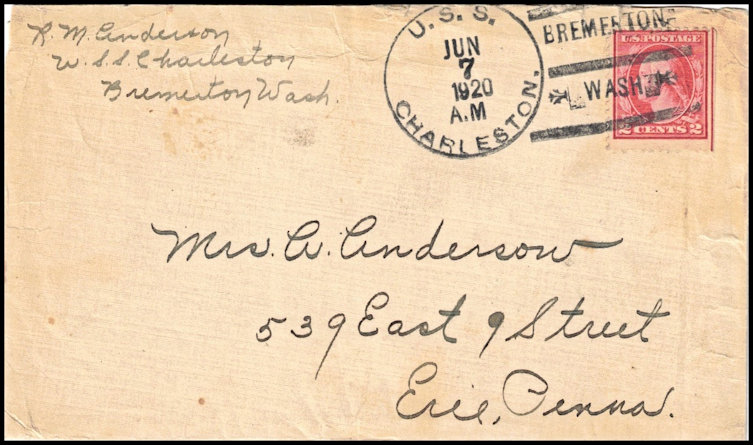 R. M. Anderson
U.S.S. Charleston
Bremerton Wash.
U. S. S.
JUN
7
1920
A.M
CHARLESTON.
BREMERTON,
WASH.
U.S. POSTAGE
2 CENTS 2
Mrs. A. Anderson
539 East 9 Street
Erie, Penna.